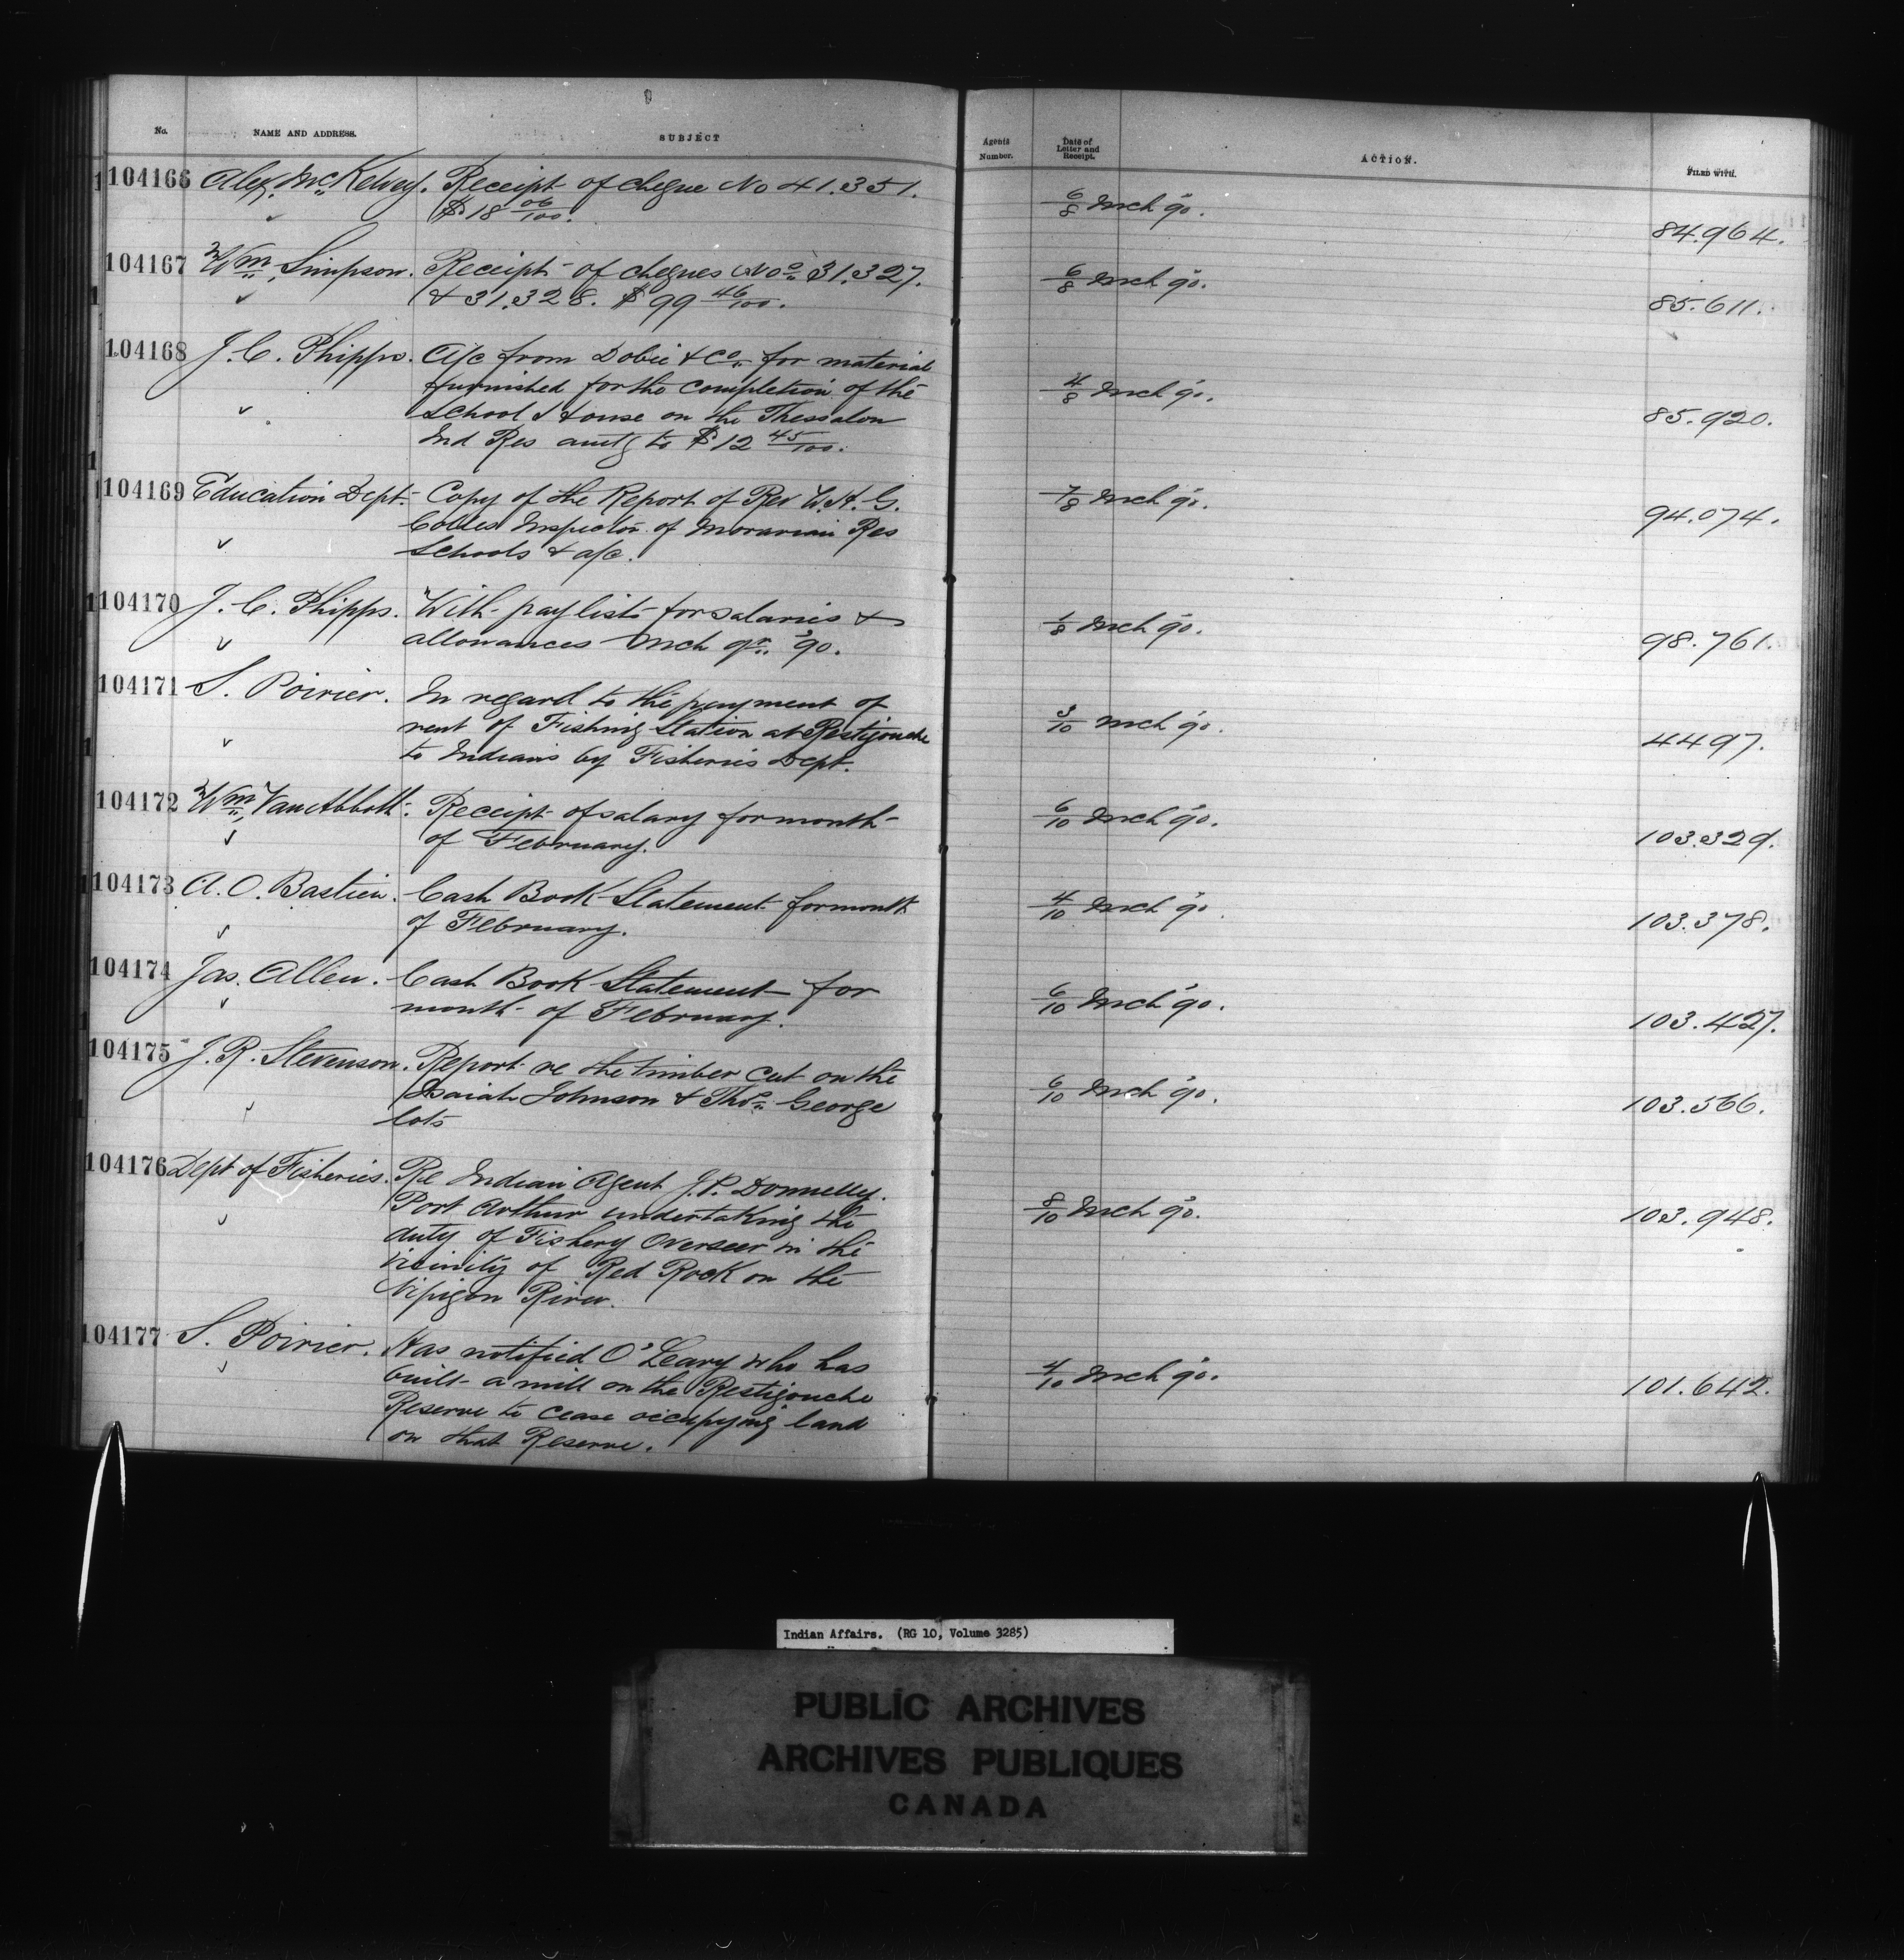 No. NAME AND ADDRESS. SUBJECT Agents Number. Date of Letter and Receipt. ACTION. FILED WITH.
104166 Alex. McKelvey. Receipt of cheque No 41.351.
$18 06/100. 6/8 Mch '90. 84.964.
104167 Wm. Simpson. Receipt of cheques Nos 31.327.
& 31.328. $99 46/100. 6/8 Mch '90. 85.611.
104168 J. C. Phipps. A/c from Dobie & Co. for material
furnished for the completion of the
School House on the Thessalon
Ind Res amtg to $12 45/100. 4/8 Mch '90. 85.920.
104169 Education Dept. Copy of the Report of Rev W. H. G.
Colles Inspector of Moravian Res
Schools & a/c. 7/8 Mch '90. 94.074.
104170 J. C. Phipps. With paylists for salaries &
allowances Mch qr. '90. 1/8 Mch '90. 98.761.
104171 S. Poirier. In regard to the payment of
rent of Fishing Station at Restigouche
to Indians by Fisheries Dept. 3/10 Mch '90. 4497.
104172 Wm. Van Abbott. Receipt of salary for month
of February. 6/10 Mch '90. 103.329.
104173 A. O. Bastien. Cash Book Statement for month
of February. 4/10 Mch '90. 103.378.
104174 Jas. Allen. Cash Book Statement for
month of February. 6/10 Mch '90. 103.427.
104175 J. R. Stevenson. Report re the timber cut on the
Isaiah Johnson & Thos. George
lots 6/10 Mch '90. 103.566.
104176 Dept of Fisheries. Re Indian Agent J. P. Donnelly.
Port Arthur undertaking the
duty of Fishery Overseer in the
vicinity of Red Rock on the
Nipigon River. 8/10 Mch '90. 103.948.
104177 S. Poirier. Has notified O'Leary who has
built a mill on the Restigouche
Reserve to cease occupying land
on that Reserve. 4/10 Mch '90. 101.642.
Indian Affairs. (RG 10, Volume 3285)
PUBLIC ARCHIVES
ARCHIVES PUBLIQUES
CANADA